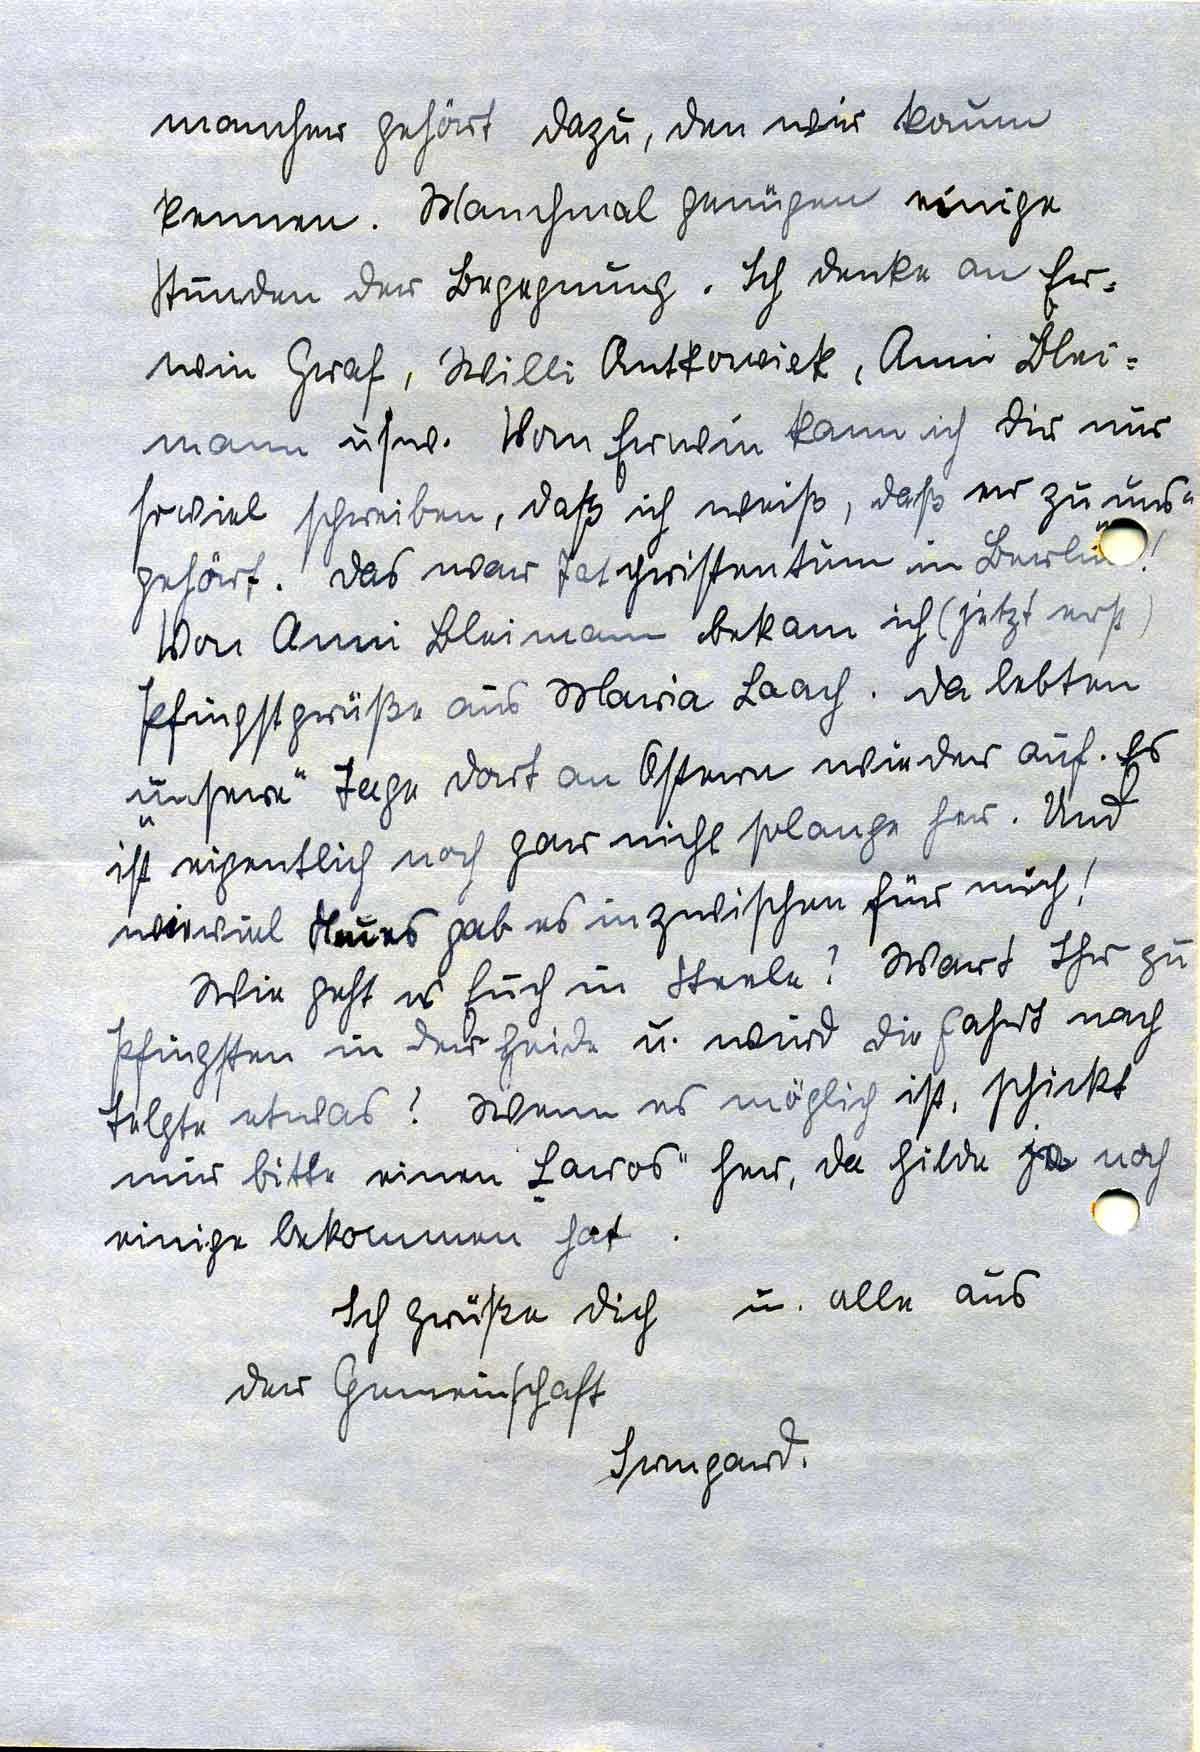 mancher gehört dazu, den wir kaum
kennen. Manchmal genügen einige
Stunden der Begegnung. Ich denke an Er-
win Graf, Willi Antkowiak, Anni Blei-
mann usw. Von Erwin kann ich Dir nur
soviel schreiben, daß ich weiß, daß er zu uns"
gehört. Das war Tatchristentum in Berlin!
Von Anni Bleimann bekam ich (jetzt erst)
Pfingstgrüße aus Maria Laach. Da lebten
„unsere" Tage dort an Ostern wieder auf. Es
ist eigentlich noch gar nicht solange her. Und
wieviel Neues gab es inzwischen für mich!
Wie geht es Euch in Steele? Wart Ihr zu
Pfingsten in der Heide u. wird die Fahrt nach
Telgte etwas? Wenn es möglich ist, schickt
mir bitte einen „Laros" her, da Hilde ja noch
einige bekommen hat.
Ich grüße Dich u. alle aus
der Gemeinschaft
Irmgard.